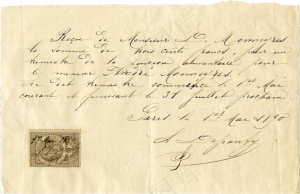 Reçu de Monsieur C. Monnieres
la somme de trois cents francs, pour un
trimestre de la pension alimentaire pour
le mineur André Monnieres.
Le dit trimestre commence le 1er Mai
courant et finissant le 31 Juillet prochain
Paris le 1er Mai 1890
1er Mai